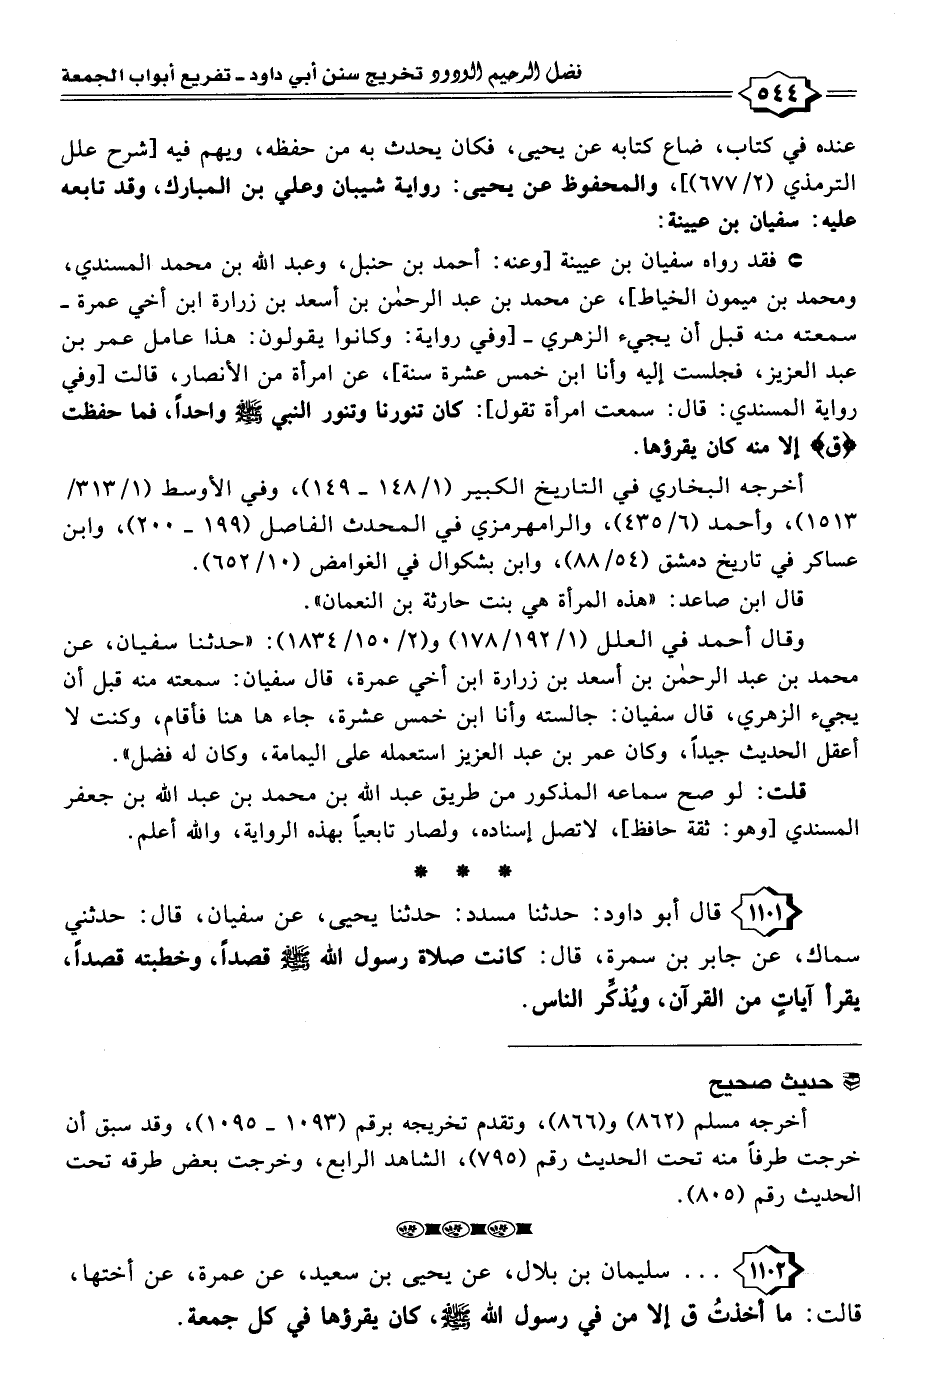 فضل الرحيم الودود تخريج سنن أبي داود - تفريع أبواب الجمعة
٥٤٤
عنده في كتاب، ضاع كتابه عن يحيى، فكان يحدث به من حفظه، ويهم فيه [شرح علل
الترمذي (٢/ ٦٧٧)]، والمحفوظ عن يحيى: رواية شيبان وعلي بن المبارك، وقد تابعه
عليه: سفيان بن عيينة:
فقد رواه سفيان بن عيينة [وعنه: أحمد بن حنبل، وعبد الله بن محمد المسندي،
ومحمد بن ميمون الخياط]، عن محمد بن عبد الرحمٰن بن أسعد بن زرارة ابن أخي عمرة -
سمعته منه قبل أن يجيء الزهري - [وفي رواية: وكانوا يقولون: هذا عامل عمر بن
عبد العزيز، فجلست إليه وأنا ابن خمس عشرة سنة]، عن امرأة من الأنصار، قالت [وفي
رواية المسندي: قال: سمعت امرأة تقول]: كان تنورنا وتنور النبي ﷺ واحداً، فما حفظت
﴿ق﴾ إلا منه كان يقرؤها.
أخرجه البخاري في التاريخ الكبير (١/ ١٤٨ - ١٤٩)، وفي الأوسط (١/ ٣١٣/
١٥١٣)، وأحمد (٦/ ٤٣٥)، والرامهرمزي في المحدث الفاصل (١٩٩ - ٢٠٠)، وابن
عساكر في تاريخ دمشق (٥٤/ ٨٨)، وابن بشكوال في الغوامض (١٠/ ٦٥٢).
قال ابن صاعد: «هذه المرأة هي بنت حارثة بن النعمان».
وقال أحمد في العلل (١/ ١٩٢/ ١٧٨) و(٢/ ١٥٠/ ١٨٣٤): «حدثنا سفيان، عن
محمد بن عبد الرحمٰن بن أسعد بن زرارة ابن أخي عمرة، قال سفيان: سمعته منه قبل أن
يجيء الزهري، قال سفيان: جالسته وأنا ابن خمس عشرة، جاء ها هنا فأقام، وكنت لا
أعقل الحديث جيداً، وكان عمر بن عبد العزيز استعمله على اليمامة، وكان له فضل».
قلت: لو صح سماعه المذكور من طريق عبد الله بن محمد بن عبد الله بن جعفر
المسندي [وهو: ثقة حافظ]، لاتصل إسناده، ولصار تابعياً بهذه الرواية، والله أعلم.
* * *
١١٠١ قال أبو داود: حدثنا مسدد: حدثنا يحيى، عن سفيان، قال: حدثني
سماك، عن جابر بن سمرة، قال: كانت صلاة رسول الله ﷺ قصداً، وخطبته قصداً،
يقرأ آياتٍ من القرآن، ويُذكِّر الناس.
حديث صحيح
أخرجه مسلم (٨٦٢) و(٨٦٦)، وتقدم تخريجه برقم (١٠٩٣ - ١٠٩٥)، وقد سبق أن
خرجت طرفاً منه تحت الحديث رقم (٧٩٥)، الشاهد الرابع، وخرجت بعض طرقه تحت
الحديث رقم (٨٠٥).
١١٠٢ ... سليمان بن بلال، عن يحيى بن سعيد، عن عمرة، عن أختها،
قالت: ما أخذتُ ق إلا من في رسول الله ﷺ، كان يقرؤها في كل جمعة.